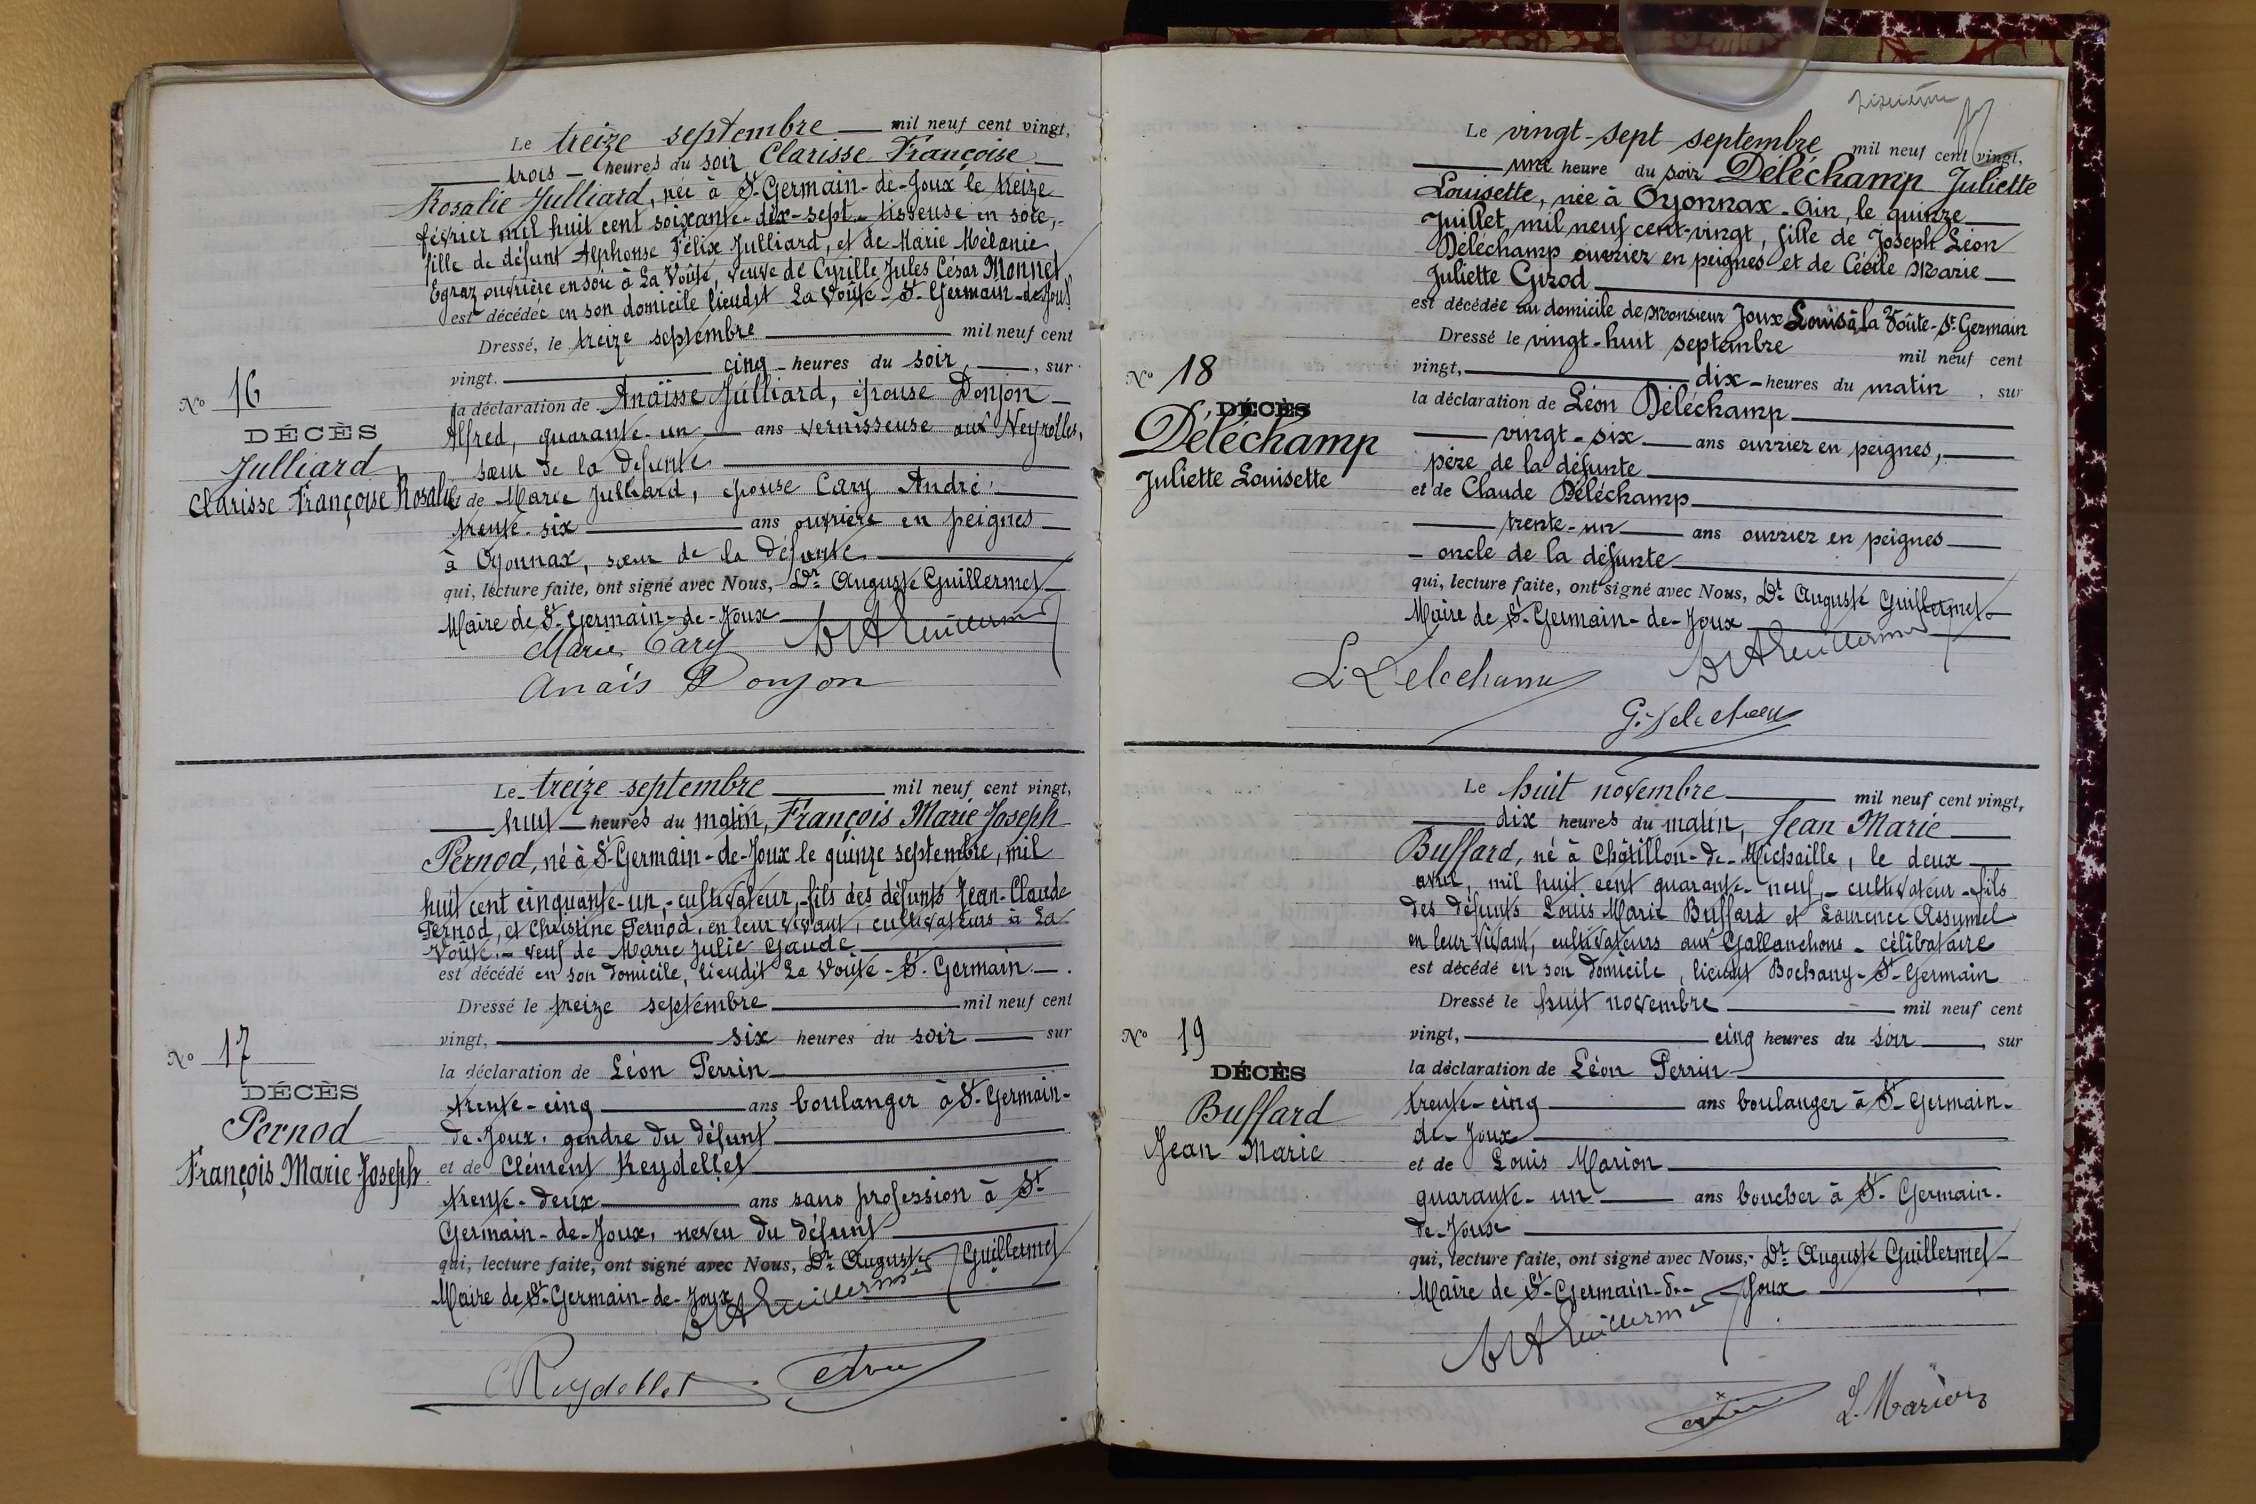 Le treize septembre mil neuf cent vingt,
trois heures du soir Clarisse Françoise
Rosalie Julliard, née à St-Germain-de-Joux le treize
février mil huit cent soixante-dix-sept - tisseuse en soie,
fille de défunt Alphonse Félix Julliard, et de Marie Mélanie
Egraz ouvrière en soie à La Voûte, veuve de Cyrille Jules César Monnet
est décédée en son domicile lieudit La Voûte - St-Germain-de-Joux
Dressé, le treize septembre mil neuf cent
vingt. cinq heures du soir, sur
la déclaration de Anaïsse Julliard, épouse Donjon
Alfred, quarante-un ans vernisseuse aux Neyrolles,
sœur de la défunte
et de Marie Julliard, épouse Cary André
trente-six ans ouvrière en peignes
à Oyonnax, sœur de la défunte
qui, lecture faite, ont signé avec Nous, Dr Auguste Guillermet
Maire de St-Germain-de-Joux
Marie Cary Dr A Guillermet
Anaïs Donjon
No 16
DÉCÈS
Julliard
Clarisse Françoise Rosalie
Le treize septembre mil neuf cent vingt,
huit heures du matin, François Marie Joseph
Pernod, né à St-Germain-de-Joux le quinze septembre, mil
huit cent cinquante-un, - cultivateur, - fils des défunts Jean-Claude
Pernod, et Christine Pernod, en leur vivant, cultivateurs à La
Voûte. - veuf de Marie Julie Gaude
est décédé en son domicile, lieudit La Voûte - St-Germain.
Dressé le treize septembre mil neuf cent
vingt, six heures du soir sur
la déclaration de Léon Perrin
trente-cinq ans boulanger à St-Germain-
de-Joux, gendre du défunt
et de Clément Reydellet
trente-deux ans sans profession à St
Germain-de-Joux, neveu du défunt
qui, lecture faite, ont signé avec Nous, Dr Auguste Guillermet
Maire de St-Germain-de-Joux
Dr A Guillermet
C Reydellet
No 17
DÉCÈS
Pernod
François Marie Joseph
Le vingt-sept septembre mil neuf cent vingt,
une heure du soir Déléchamp Juliette
Louisette, née à Oyonnax - Ain, le quinze
Juillet, mil neuf cent-vingt, fille de Joseph Léon
Déléchamp ouvrier en peignes et de Cécile Marie
Juliette Girod
est décédée au domicile de Monsieur Joux Louis à la Voûte-St-Germain
Dressé le vingt-huit septembre mil neuf cent
vingt, dix heures du matin, sur
la déclaration de Léon Déléchamp
vingt-six ans ouvrier en peignes,
père de la défunte
et de Claude Déléchamp
trente-un ans ouvrier en peignes
oncle de la défunte
qui, lecture faite, ont signé avec Nous, Dr Auguste Guillermet
Maire de St-Germain-de-Joux
Dr A Guillermet
L. Delechamp
No 18
DÉCÈS
Déléchamp
Juliette Louisette
Le huit novembre mil neuf cent vingt,
dix heures du matin, Jean Marie
Buffard, né à Châtillon-de-Michaille, le deux
avril, mil huit cent quarante-neuf, - cultivateur - fils
des défunts Louis Marie Buffard et Laurence Assumel
en leur vivant, cultivateurs aux Gallanchons - célibataire
est décédé en son domicile, lieudit Bochany - St-Germain
Dressé le huit novembre mil neuf cent
vingt, cinq heures du soir, sur
la déclaration de Léon Perrin
trente-cinq ans boulanger à St-Germain-
de-Joux
et de Louis Marion
quarante-un ans boucher à St-Germain-
de-Joux
qui, lecture faite, ont signé avec Nous, Dr Auguste Guillermet
Maire de St-Germain-de-Joux
Dr A Guillermet
L. Marion
No 19
DÉCÈS
Buffard
Jean Marie